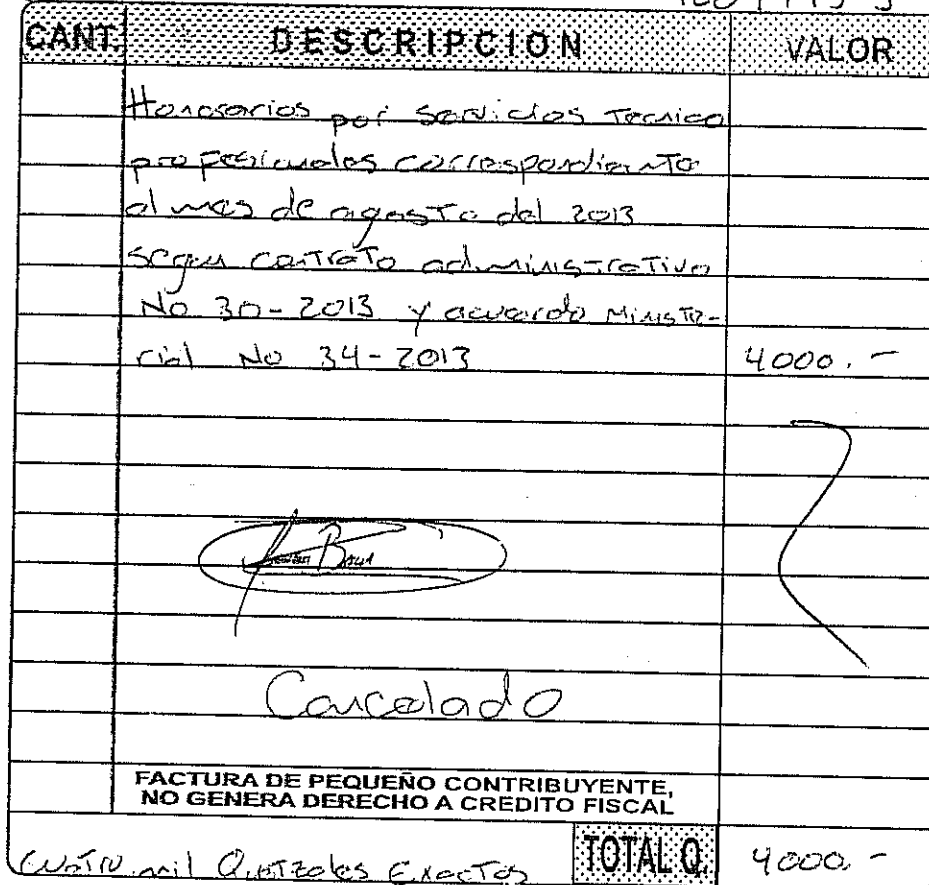 CANT. DESCRIPCION VALOR
Honorarios por Servicios Tecnico
profesionales correspondiente
al mes de agosto del 2013
segun contrato administrativo
No 30-2013 y acuerdo Ministe-
rial No 34-2013 4000.-
Cancelado
FACTURA DE PEQUEÑO CONTRIBUYENTE,
NO GENERA DERECHO A CREDITO FISCAL
Cuatro mil Quetzales Exactos TOTAL Q. 4000.-